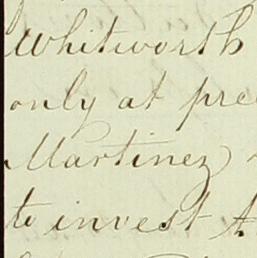 Whitworth
only at pre
Martinez
to invest